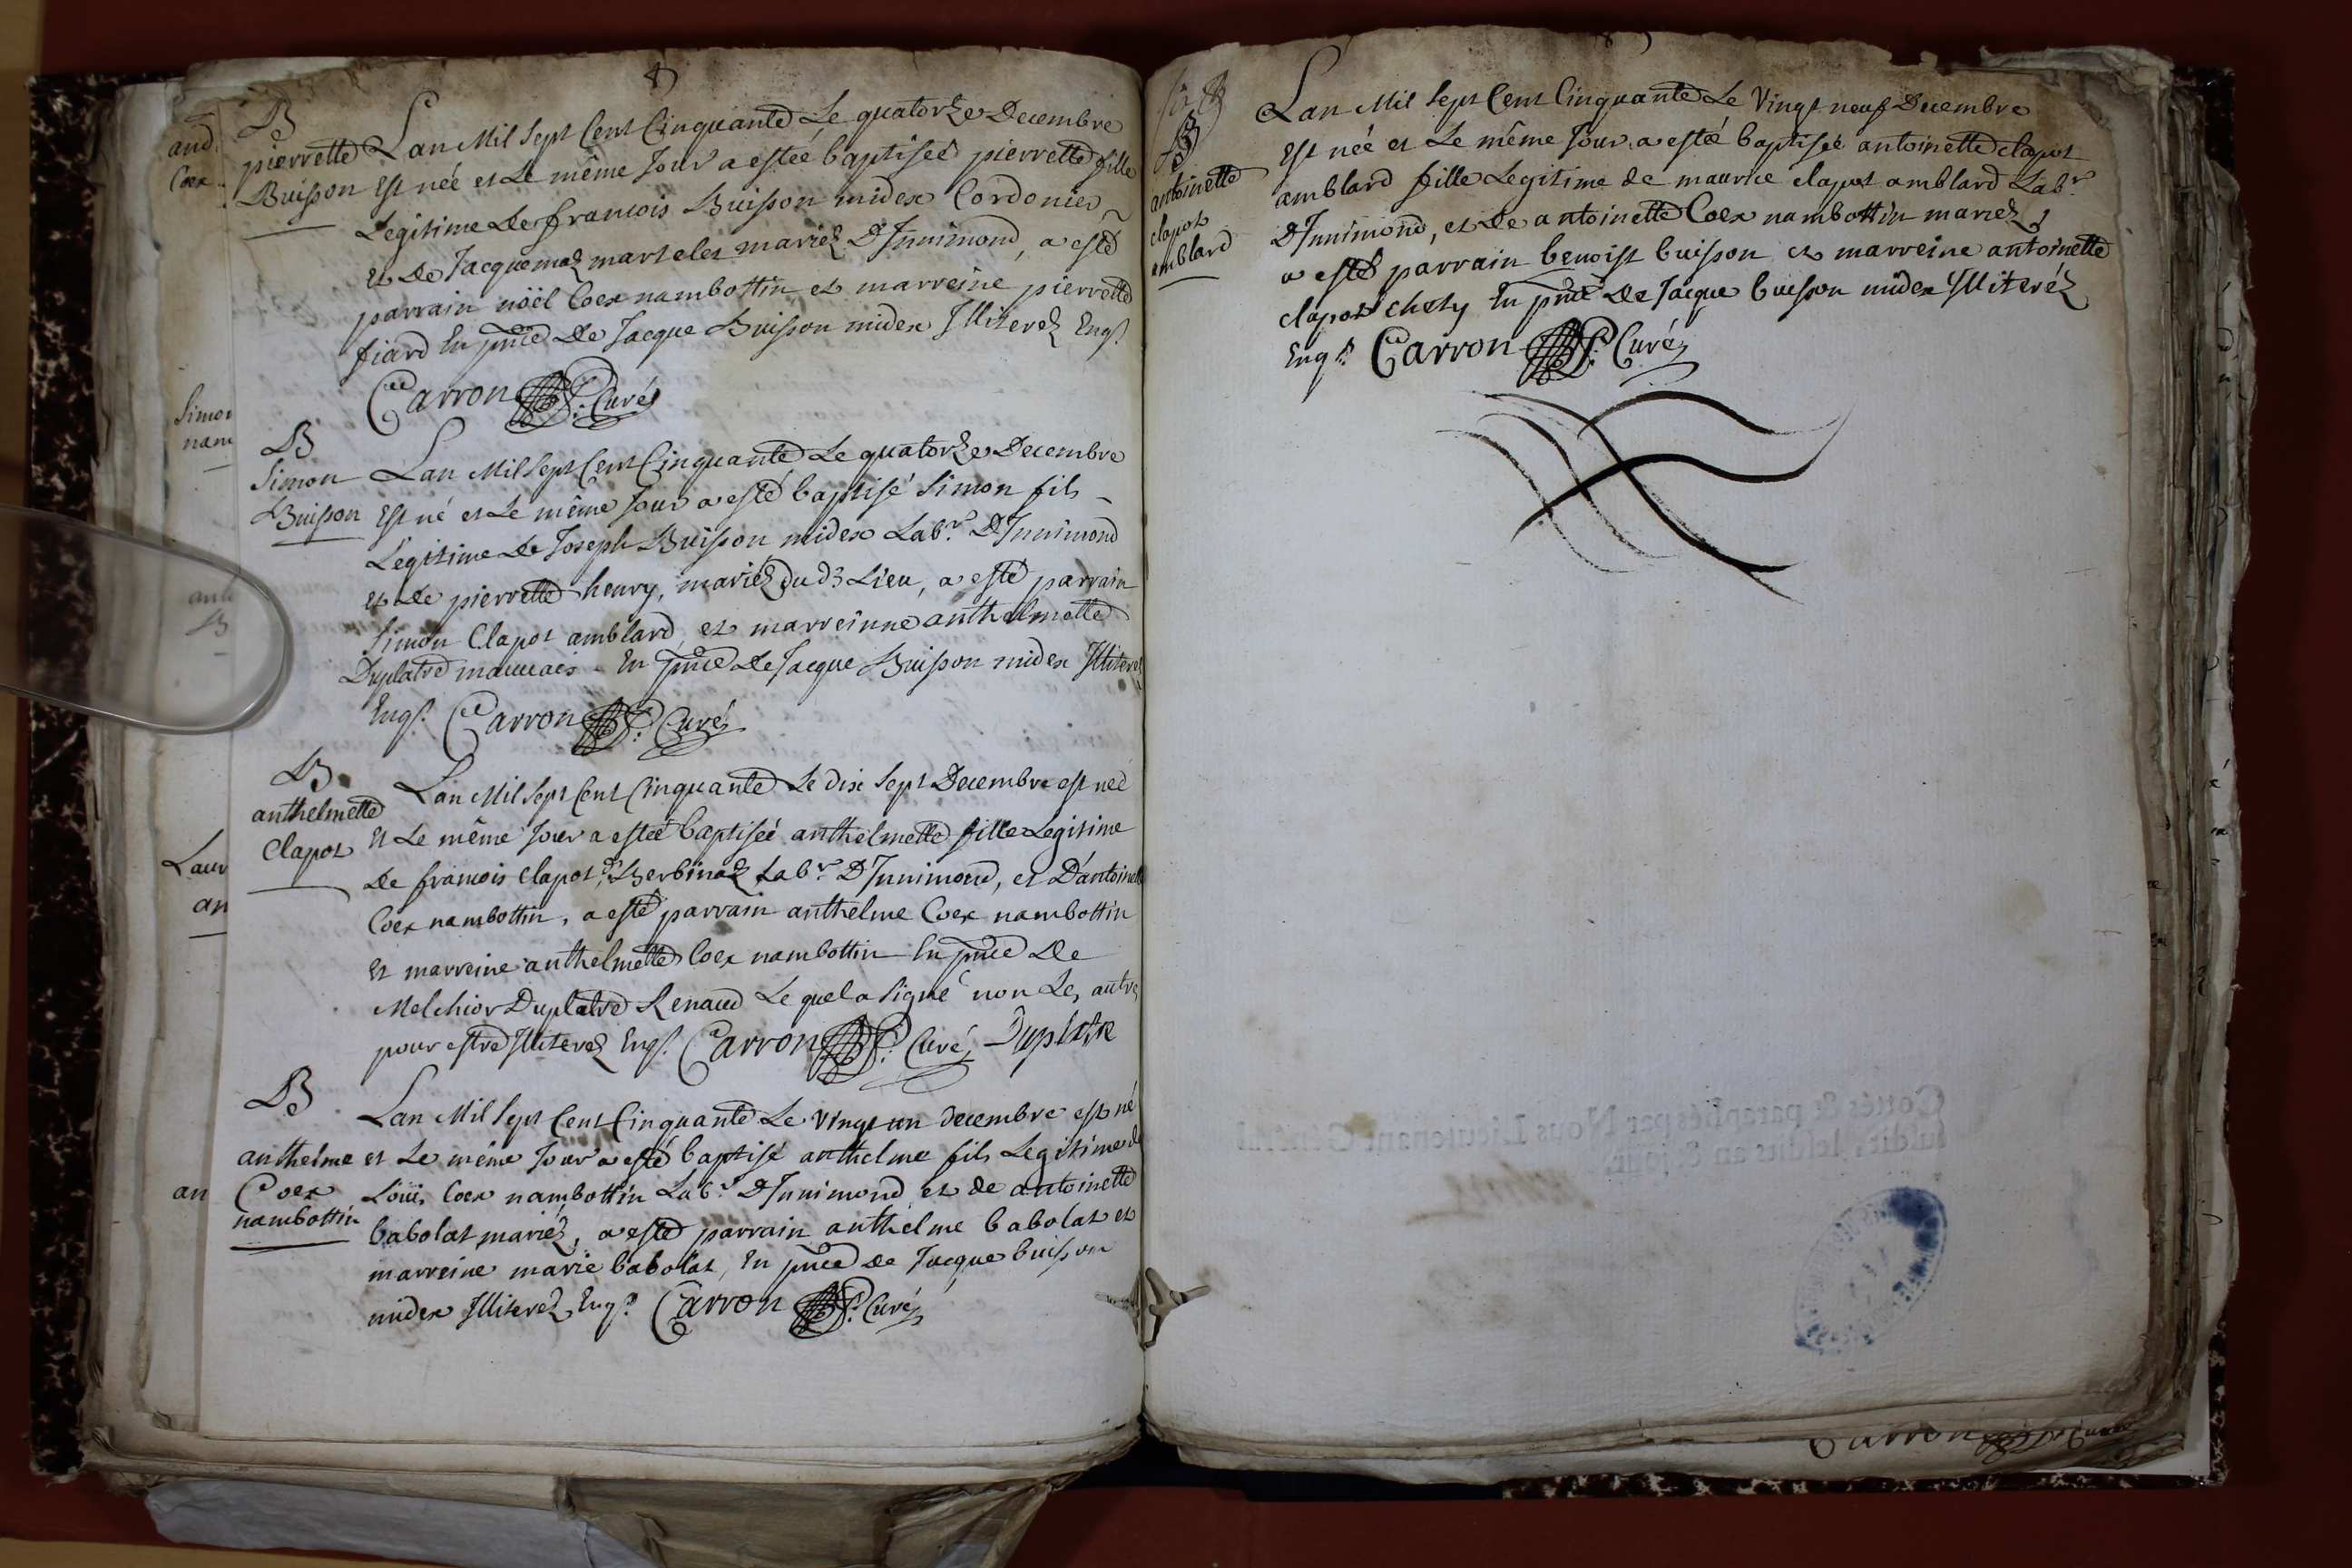 B
pierrette
Buisson
Lan Mil Sept Cent Cinquante Le quatorze Decembre
Est née et Le même Jour a estée baptiseé pierrette fille
Legitime De francois Buisson midex Cordonier
et De Jacquemaz martelet mariéz D'Innimond, a esté
parrain nöel Coex nambottin et marreine pierrette
fiard En pnce De Jacque Buisson midex Illiterez Engt.
Carron P. Curé
B
Simon
Buisson
Lan Mil Sept Cent Cinquante Le quatorze Decembre
Est né et Le même Jour a esté baptisé Simon fils
Legitime De Joseph Buisson midex Labr. D'Innimond
et de pierrette henry, mariéz du d. Lieu, a esté parrain
Simon Clapot amblard, et marreinne anthelmette
Duplatre mauuais En pnce De Jacque Buisson midex Illiterez
Engt. Carron P. Curé
B
anthelmette
Clapot
Lan Mil Sept Cent Cinquante Le dix Sept Decembre est neé
Et Le même Jour a estée baptiseé anthelmette fille Legitime
De francois Clapot dt. Berbinaz Labr. D'Innimond, et D'antoinette
Coex nambottin, a esté parrain anthelme Coex nambottin
et marreine anthelmette Coex nambottin En pnce De
Melchior Duplatre Renaud Le quel a Signé non Les autres
pour estre Illiterez Engt. Carron P. Curé Duplatre
B
anthelme
Coex
nambottin
Lan Mil Sept Cent Cinquante Le vingt un decembre est né
et Le même Jour a esté baptisé anthelme fils Legitime de
Loüis Coex nambottin Labr. D'Innimond et de antoinette
babolat mariéz, a esté parrain anthelme babolat et
marreine marie babolat, En pnce de Jacque buisson
midex Illiterez Engt. Carron P. Curé
B
antoinette
clapot
amblard
Lan Mil Sept Cent Cinquante Le Vingt neuf Decembre
Est née et Le même Jour a esteé baptiseé antoinette clapot
amblard fille Legitime de maurice clapot amblard Labr
D'Innimond, et De antoinette Coex nambottin mariez
a esté parrain benoist buisson et marreine antoinette
clapot chety En pnce De Jacque buisson midex Illiteréz
Engt. Carron P. Curé